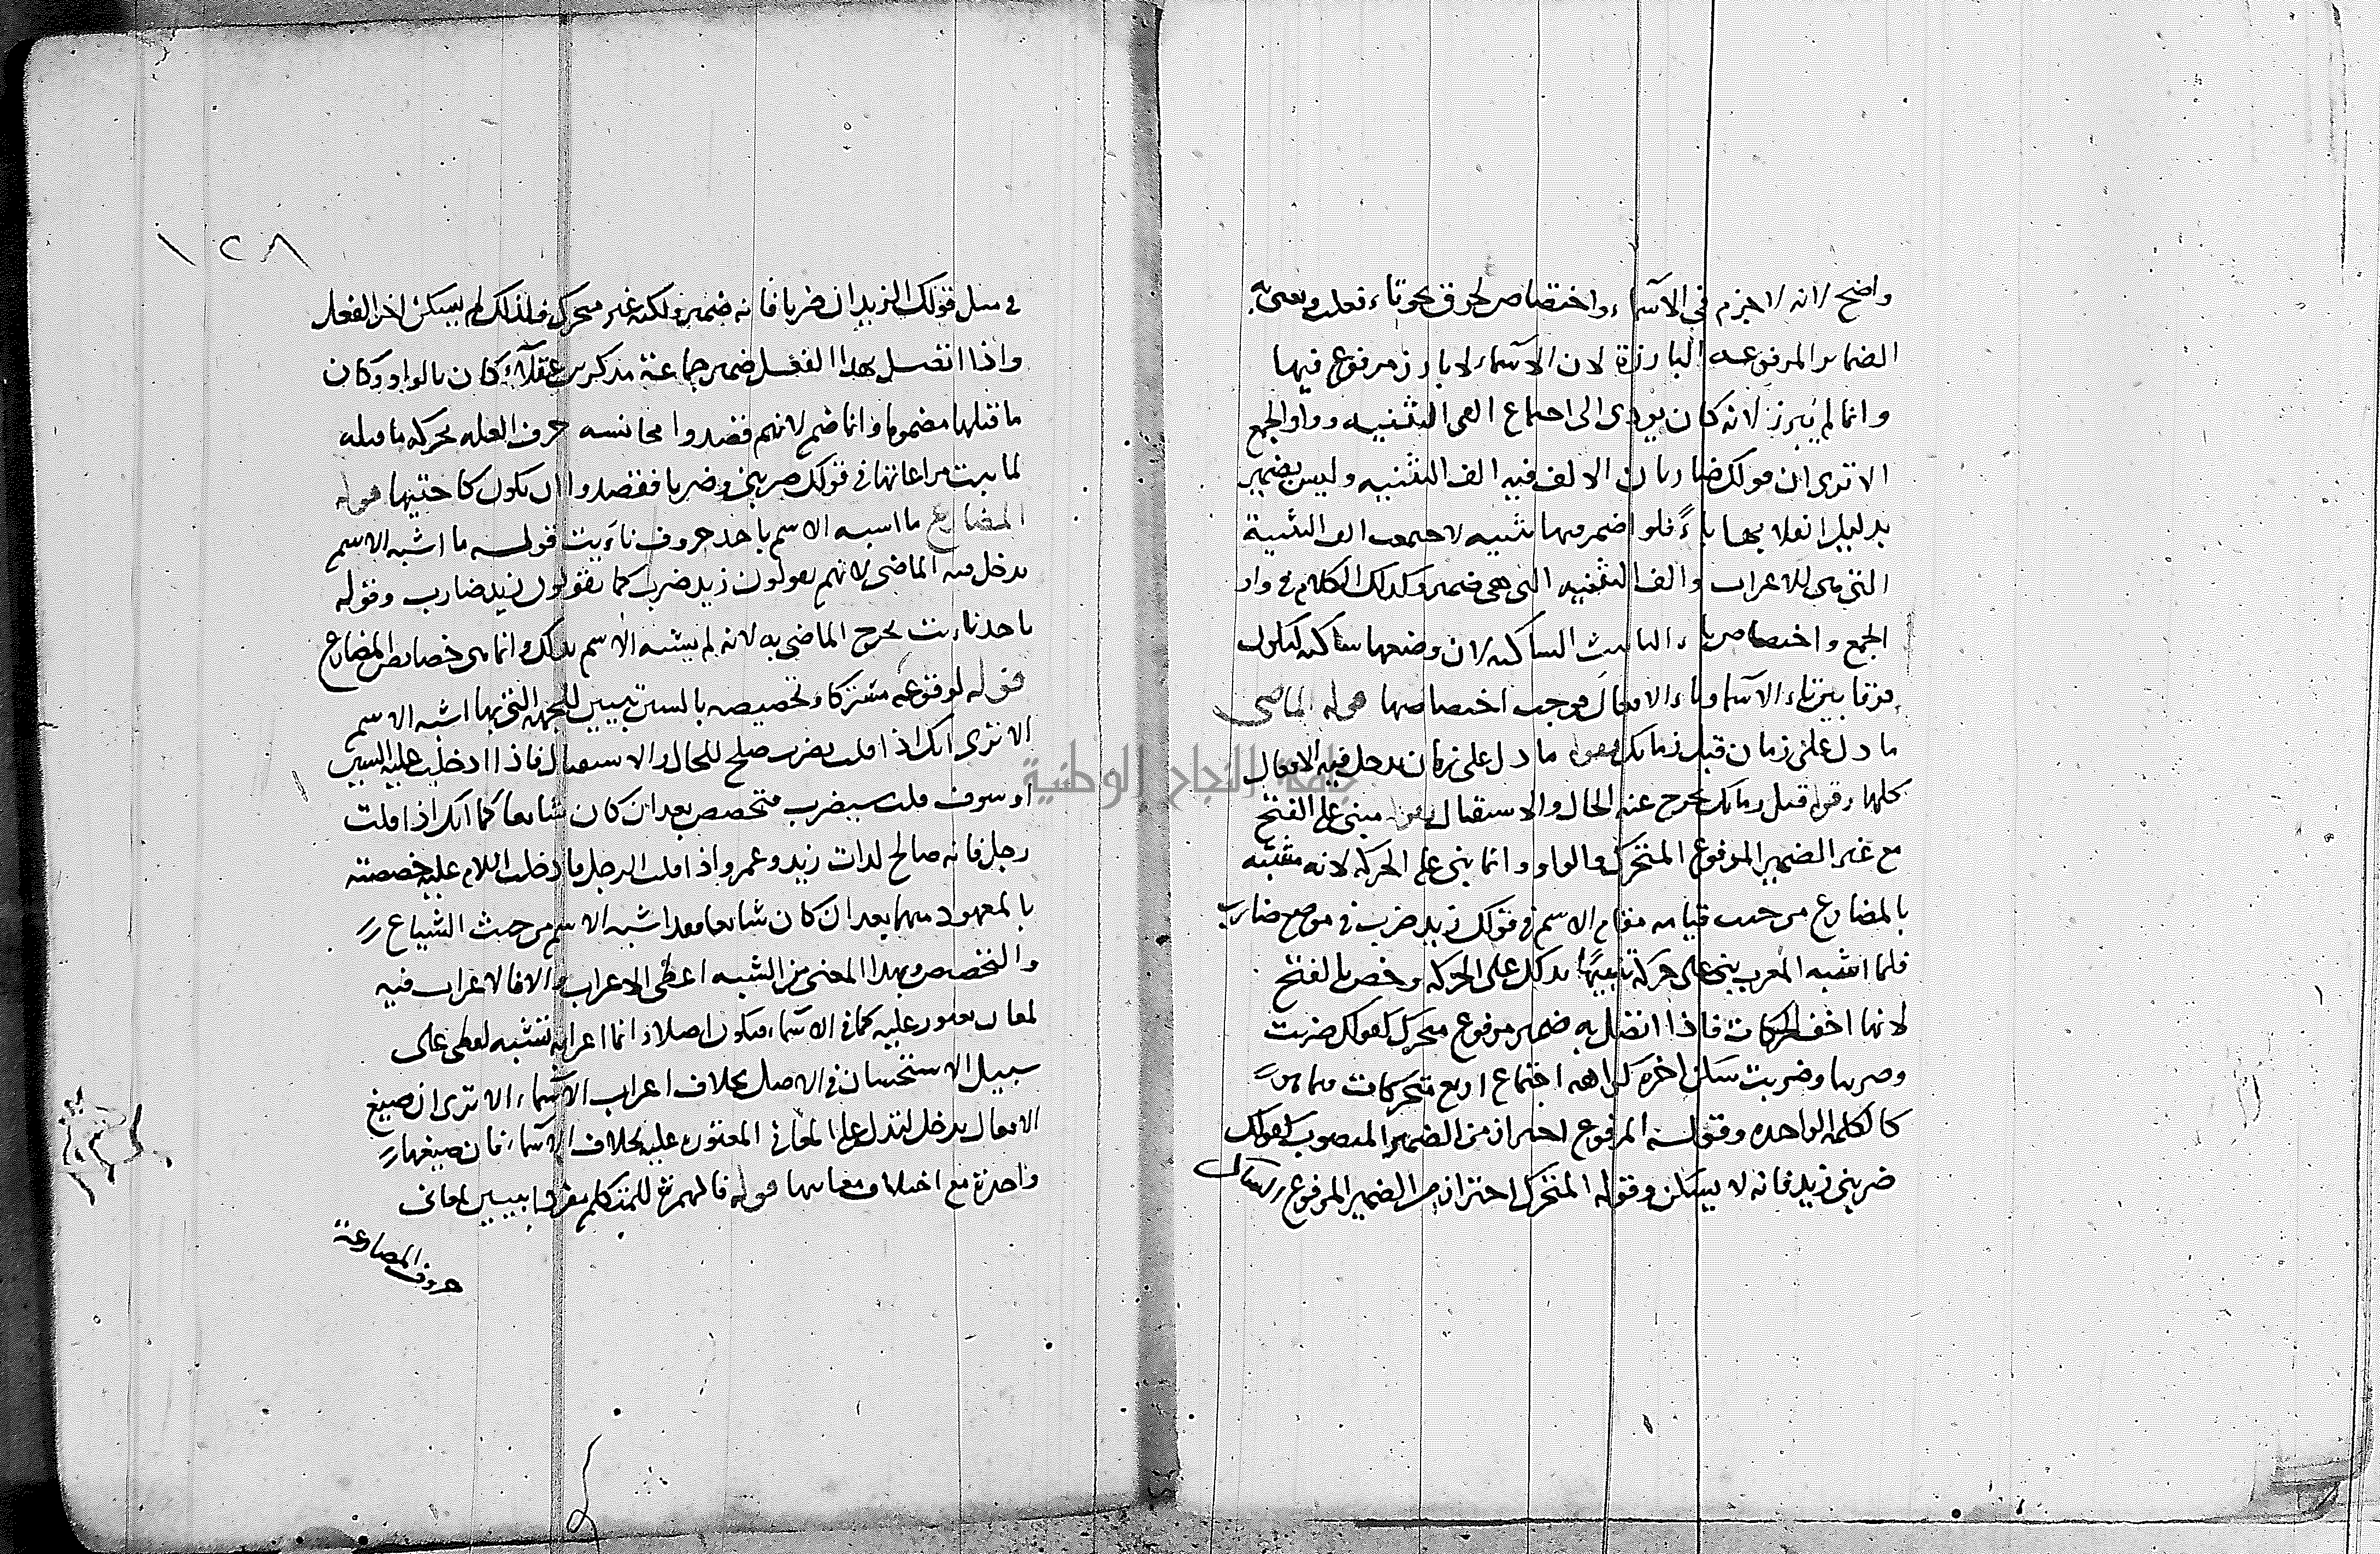 واضح لانه لا جزم في الاسماء واختصاص لحوق نحو تاء فعلت ونعني به
الضماير المرفوعه البارزة لان الاسماء لا بارز مرفوع فيها
وانما لم يبرز لانه كان يودى الى اجتماع الفي التثنيه وواو الجمع
الا ترى ان قولك ضاربان الالف فيه الف التثنيه وليس بضمير
بدليل انقلابها ياءً فلو اضمر فيها تثنيه لاجتمعت الف التثنية
التي هي للاعراب والف التثنيه التي هي ضمير وكذلك الكلام في واو
الجمع واختصاص تاء التانيث الساكنه لان وضعها ساكنه ليكون
فرقا بين تاء الاسماء وتاء الافعال فوجب اختصاصها قوله الماضي
ما دل على زمان قبل زمانك فقوله ما دل على زمان يدخل فيه الافعال
كلها وقوله قبل زمانك يخرج عنه الحال والاستقبال قوله مبني على الفتح
مع غير الضمير المرفوع المتحرك والواو وانما بني على الحركه لانه مشبه
بالمضارع من حيث قيامه مقام الاسم في قولك زيد ضرب في موضع ضارب
فلما اشبه المعرب بني على حركة تنبيهًا بذلك على الحركه وخص بالفتح
لانها اخف الحركات فاذا اتصل به ضمير مرفوع متحرك كقولك ضربت
وضربنا وضربت سكن اخره كراهه اجتماع اربع متحركات فيما هو
كالكلمه الواحده وقوله المرفوع احتراز من الضمير المنصوب كقولك
ضربني زيد فانه لا يسكن وقوله المتحرك احتراز من الضمير المرفوع الساكن
١٢٨
في مثل قولك الزيدان ضربا فانه ضمير ولكنه غير متحرك فلذلك لم يسكن اخر الفعل
واذا اتصل بهذا الفعل ضمير جماعة مذكرين عقلاء كان بالواو وكان
ما قبلها مضموما وانما ضم لانهم قصدوا مجانسه حرف العله بحركه ما قبله
لما ثبت مراعاتها في قولك ضربني وضربا فقصدوا ان يكون كاختيها قوله
المضارع ما اشبه الاسم باحد حروف نايت قوله ما اشبه الاسم
يدخل فيه الماضي لانهم يقولون زيد ضرب كما يقولون زيد ضارب وقوله
باحد نايت يخرج الماضي به لانه لم يشبه الاسم بذلك وانما هي خصايص المضارع
قوله لوقوعه مشتركا وتخصيصه بالسين تبيين للجهه التي بها اشبه الاسم
الا ترى انك اذا قلت يضرب صلح للحال والاستقبال فاذا ادخلت عليه السين
او سوف قلت سيضرب متخصص بعد ان كان شايعا كما انك اذا قلت
رجل فانه صالح لذات زيد وعمرو واذا قلت الرجل فادخلت اللام عليه خصصته
بالمعهود منهما بعد ان كان شايعا فقد اشبه الاسم من حيث الشياع
والتخصيص وبهذا المعنى من الشبه اعطي الاعراب والا فالاعراب فيه
لمعان تعتور عليه كما في الاسماء فيكون اصلا وانما اعرابه لشبه لفظي على
سبيل الاستحسان في الاصل بخلاف اعراب الاسماء الا ترى ان صيغ
الافعال يدخل لتدل على المعاني المعتوره عليه بخلاف الاسماء فان صيغها
واحدة مع اختلاف معانيها قوله فالهمزة للمتكلم مفردا تبيين لمعاني
حروف المضارعة
جامعة النجاح الوطنية